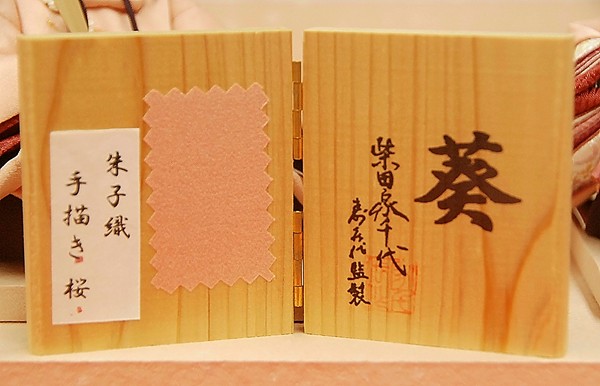 葵
柴田家千代
寿五代監製
朱子織
手描き 桜